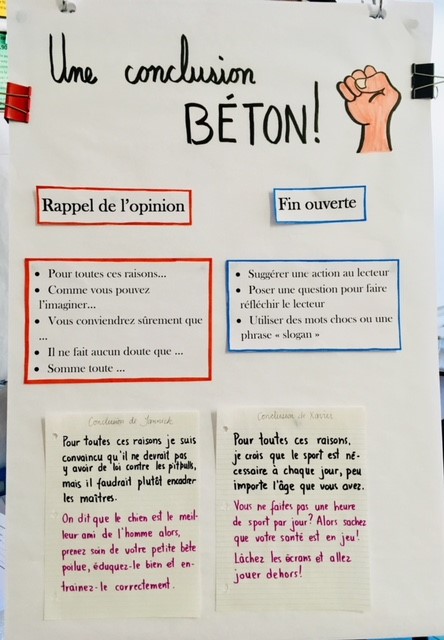 Une conclusion
BÉTON!
Rappel de l'opinion
• Pour toutes ces raisons...
• Comme vous pouvez
l'imaginer...
• Vous conviendrez sûrement que
...
• Il ne fait aucun doute que ...
• Somme toute ...
Fin ouverte
• Suggérer une action au lecteur
• Poser une question pour faire
réfléchir le lecteur
• Utiliser des mots chocs ou une
phrase « slogan »
Conclusion de Yannick
Pour toutes ces raisons je suis
convaincu qu'il ne devrait pas
y avoir de loi contre les pitbulls,
mais il faudrait plutôt encadrer
les maîtres.
On dit que le chien est le meil-
leur ami de l'homme alors,
prenez soin de votre petite bête
poilue, éduquez-le bien et en-
trainez-le correctement.
Conclusion de
Pour toutes ces raisons,
je crois que le sport est né-
cessaire à chaque jour, peu
importe l'âge que vous avez.
Vous ne faites pas une heure
de sport par jour? Alors sachez
que votre santé est en jeu!
Lâchez les écrans et allez
jouer dehors!